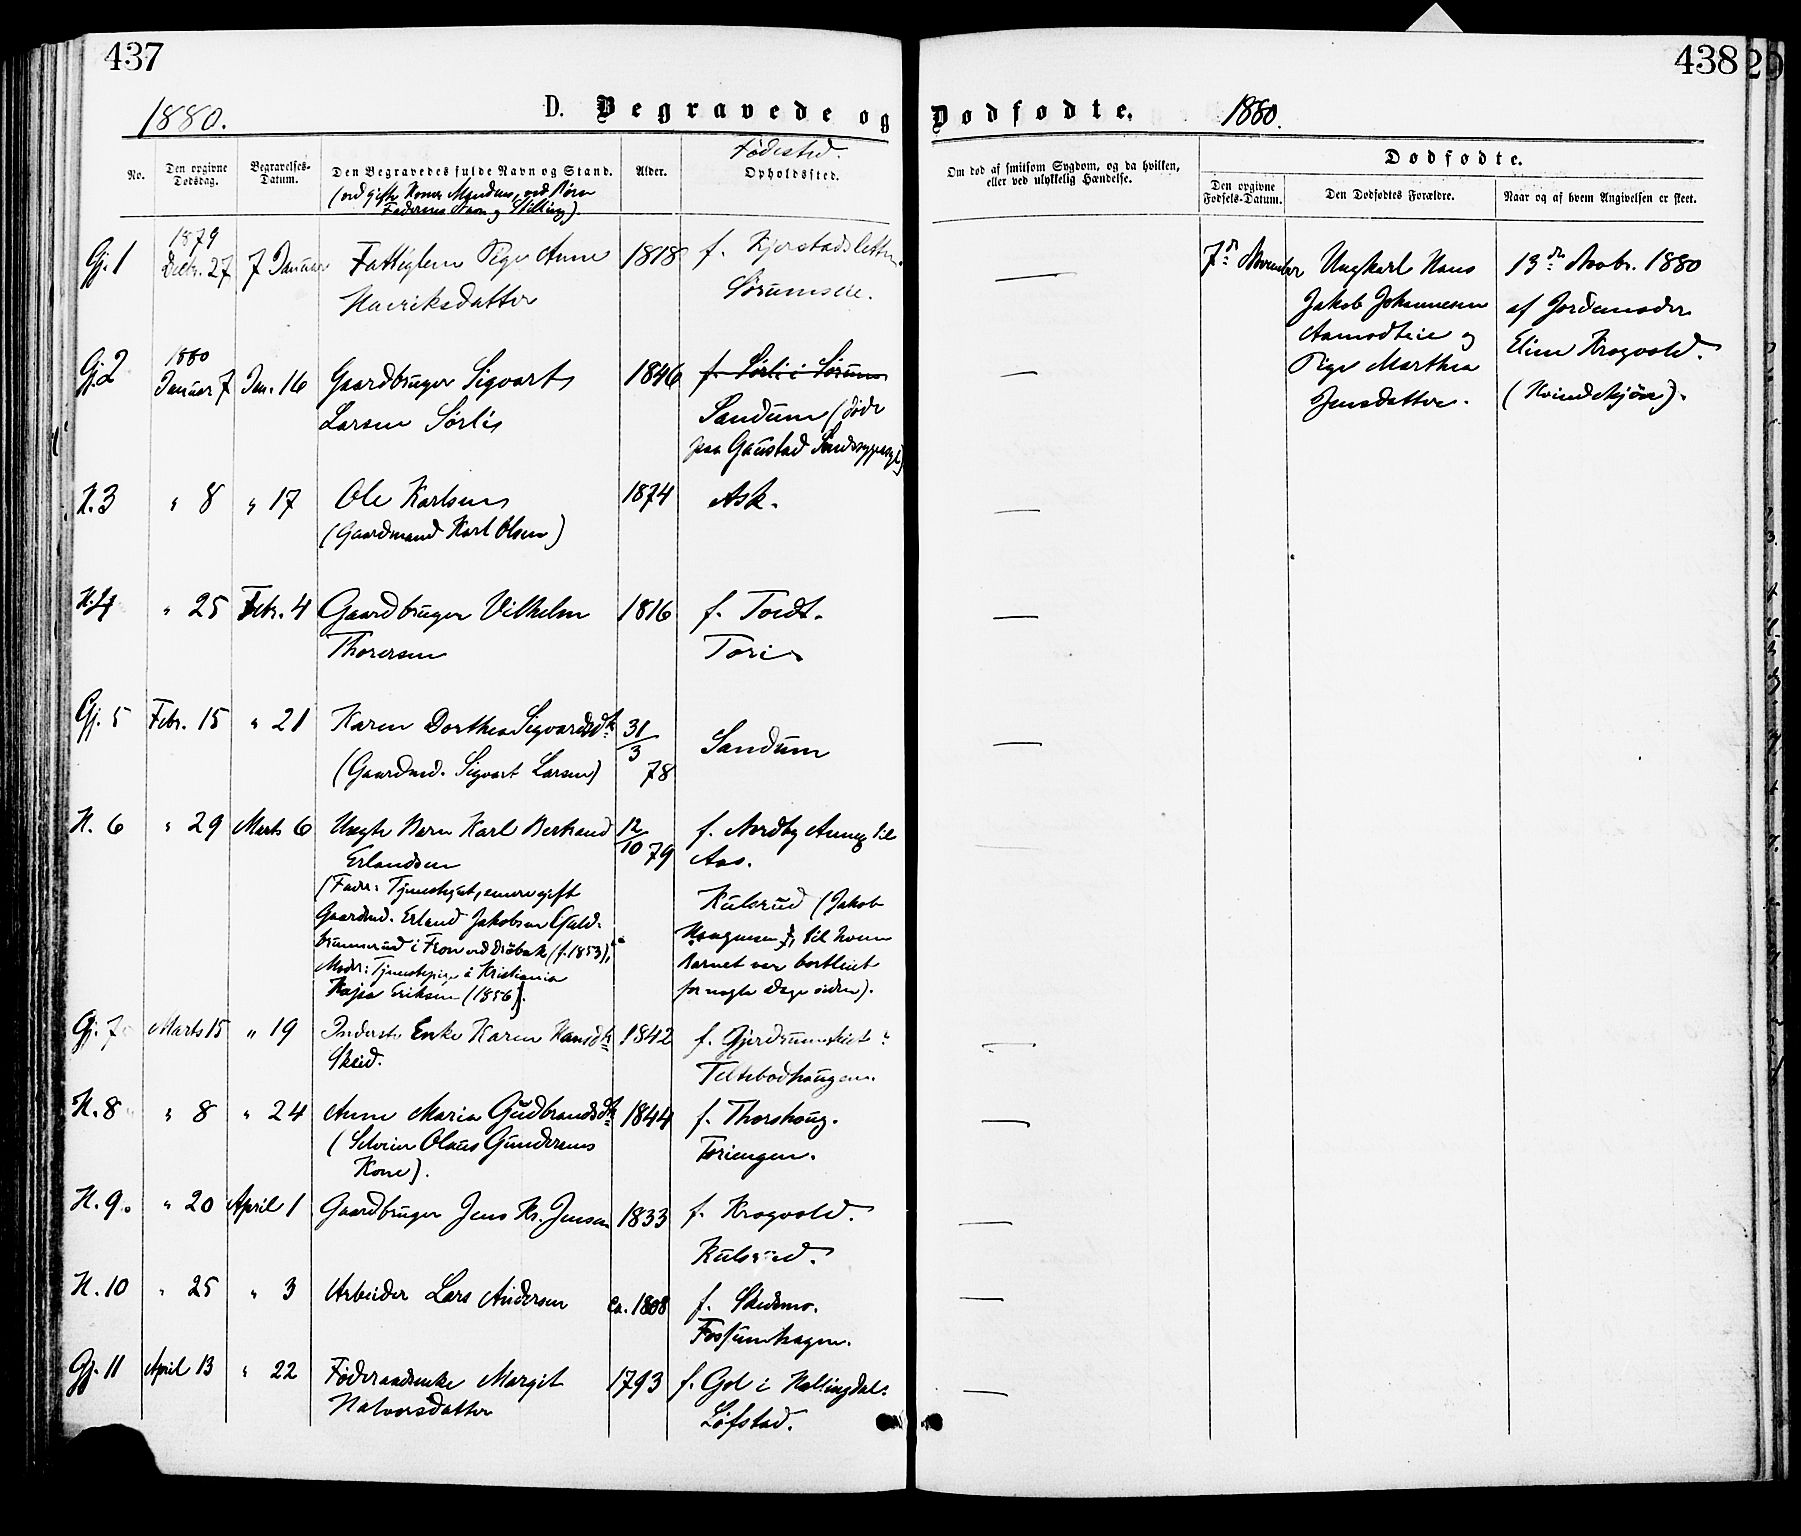 437
1880.
D. Begravede og
No.
Den opgivne Dødsdag.
Begravelses-Datum.
Den Begravedes fulde Navn og Stand.
(ved gifte Koner Mandens, ved Børn
Faderens Navn og Stilling).
Alder.
Fødested.
Opholdssted.
Gj. 1 1879 Decbr. 27 7 Januar Fattiglem Pige Anne 1818 f. Kjerstadsletten.
Henriksdatter Sørumseie.
Gj. 2 1880 Januar 7 Jan. 16 Gaardbruger Sigvart 1846 f. Sørli i Sørum
Larsen Sørlie Sandum (døde
paa Gaustad Sindssygeasyl)
N. 3 " 8 " 17 Ole Karlsen 1874 Ask.
(Gaardmand Karl Olsen)
N. 4 " 25 Febr. 4 Gaardbruger Vilhelm 1816 f.
Thoresen
Gj. 5 Febr. 15 " 21 Karen Dorthea Sigvardsdt. 31/3 78 Sandum
(Gaardmd. Sigvart Larsen)
N. 6 " 29 Marts 6 Uægte Barn Karl Bertrand 12/10 79 f. Nordby Annex til
Erlandsen Aas.
(Fader: Tjenestegut, senere gift
Gaardmd. Erland Jakobsen Guld- Kulsrud (Jakob
i Fron ved Drøbak (f. 1853), til hvem
Moder: Tjenestepige i Kristiania Barnet var bortleiet
Kaja Eriksen (1856). for nogle Dage siden).
Gj. 7 Marts 15 " 19 Inderst Enke Karen Hansdt. 1842 f.
Skeid. Teltebodhaugen.
N. 8 " 8 " 24 Anne Maria Gudbrandsdt. 1844 f. Thorshoug.
(Selveier Olaus Gundersens Toriengen.
Kone).
N. 9. " 20 April 1 Gaardbruger Jens Kr. Jensen 1833 f. Krogvold.
Kulsrud.
N. 10 " 25 " 3 Arbeider Lars Andersen ca. 1808 f. Skedsmo.
Fossumhagen.
Gj. 11 April 13 " 22 Føderaadsenke Margit 1793 f. Gol i Hallingdal.
Halvorsdatter Løfstad.
438
Dødfødte. 1880.
Om død af smitsom Sygdom, og da hvilken,
eller ved ulykkelig Hændelse.
Dødfødte.
Den opgivne Fødsels-Datum.
Den Dødfødtes Forældre.
Naar og af hvem Angivelsen er skeet.
7de November Ungkarl Hans 13de Novbr. 1880
Jakob Johannesen af Jordemoder
Aamodteie og Eline Krogvold.
Pige Marthea (Kvindekjøn).
Jensdatter.